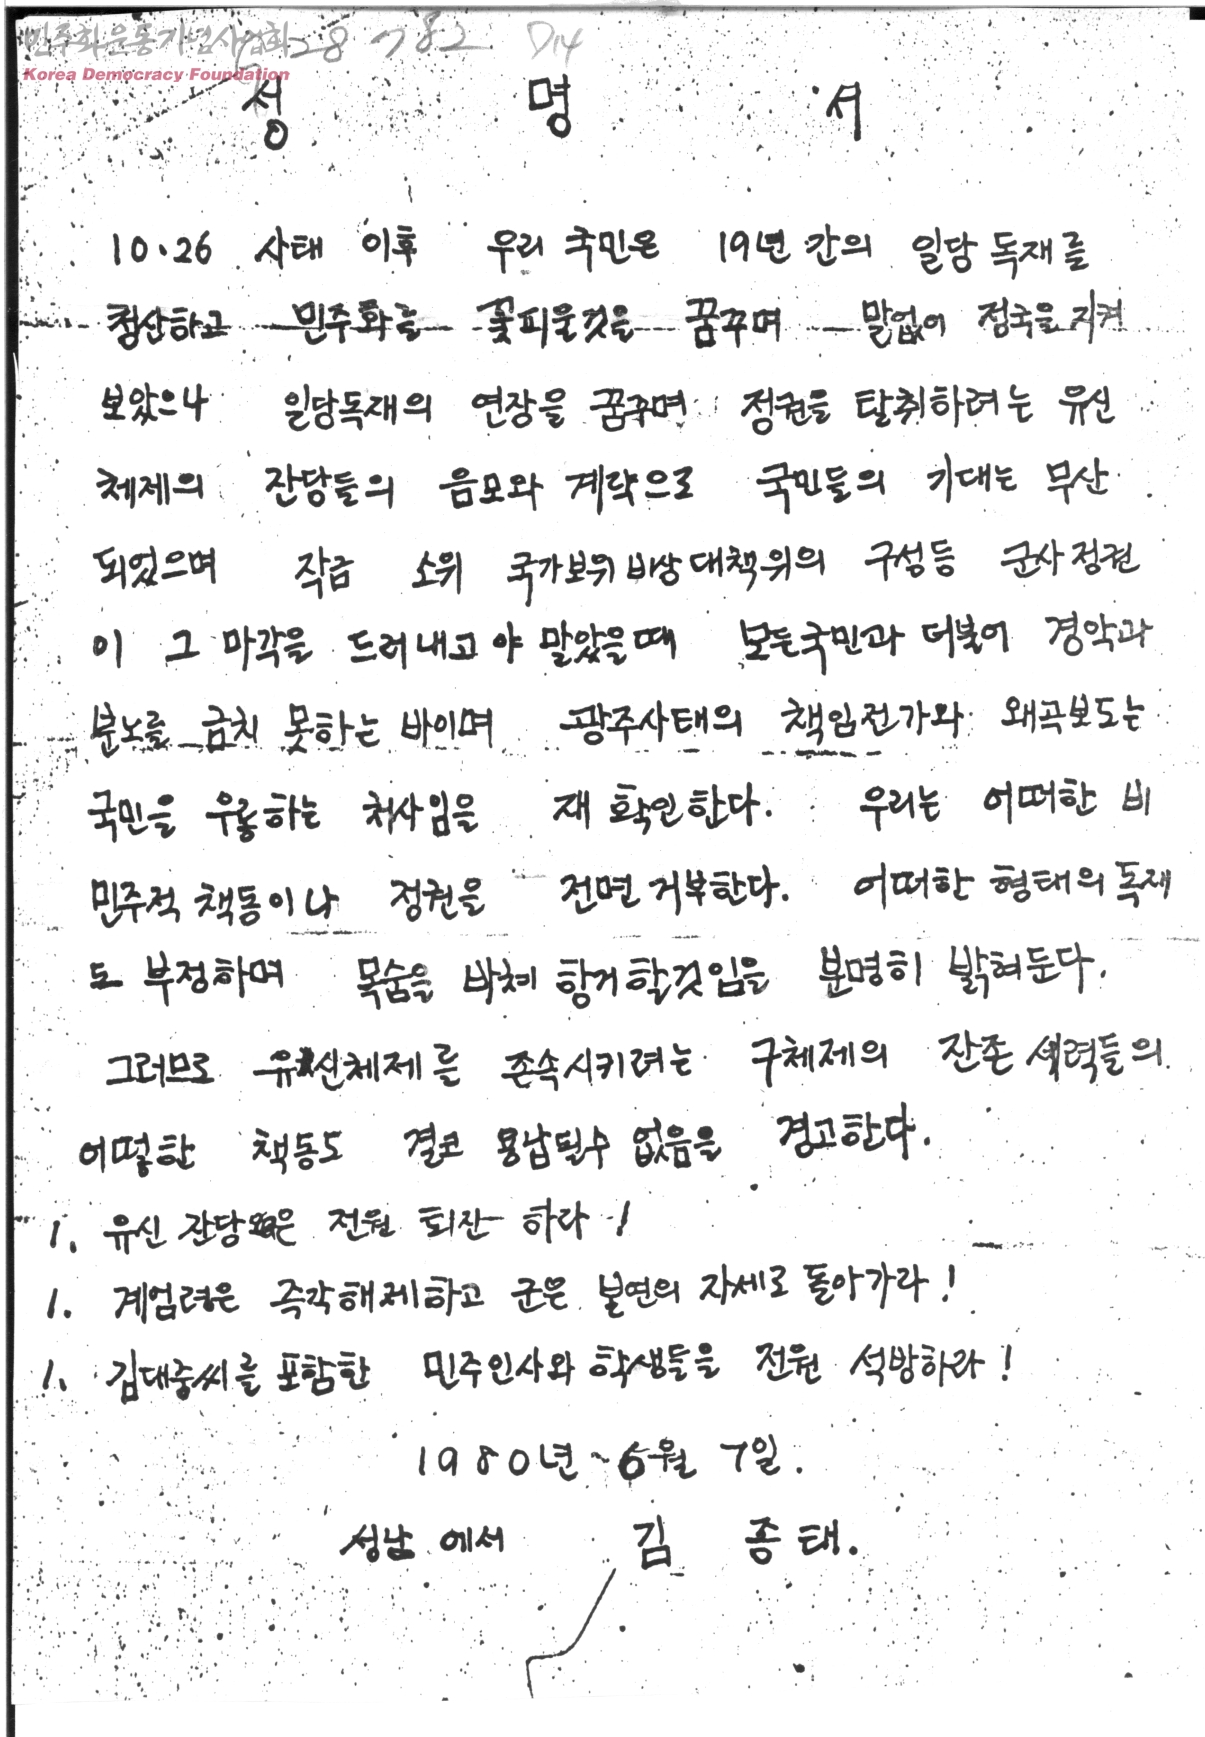 민주화운동기념사업회 28782 D14
Korea Democracy Foundation
성 명 서
10.26 사태 이후 우리 국민은 19년 간의 일당 독재를
청산하고 민주화를 꽃피울것을 꿈꾸며 말없이 정국을 지켜
보았으나 일당독재의 연장을 꿈꾸며 정권을 탈취하려는 유신
체제의 잔당들의 음모와 계략으로 국민들의 기대는 무산
되었으며 작금 소위 국가보위비상대책위의 구성등 군사정권
이 그 마각을 드러내고야 말았을때 모든국민과 더불어 경악과
분노를 금치 못하는 바이며 광주사태의 책임전가와 왜곡보도는
국민을 우롱하는 처사임을 재 확인한다. 우리는 어떠한 비
민주적 책동이나 정권을 전면 거부한다. 어떠한 형태의 독재
도 부정하며 목숨을 바쳐 항거할것임을 분명히 밝혀둔다.
그러므로 유신체제를 존속시키려는 구체제의 잔존 세력들의
어떻한 책동도 결코 용납될수 없음을 경고한다.
1. 유신 잔당은 전원 퇴진 하라!
1. 계엄령은 즉각해제하고 군은 본연의 자세로 돌아가라!
1. 김대중씨를 포함한 민주인사와 학생들을 전원 석방하라!
1980년 6월 7일.
성남 에서 김 종 태.